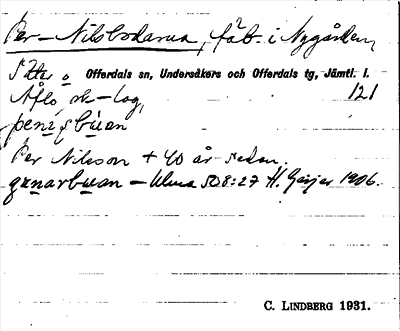 Per-Nilsbodarna, fäb. i Nygården,
Offerdals sn, Undersåkers och Offerdals tg, Jämtl. l.
Åflo, sk-lag, 121
Per Nilsson + 40 år sedan.
gunarbuan - Ulma 508:27 H. Geijer 1906.
C. LINDBERG 1931.